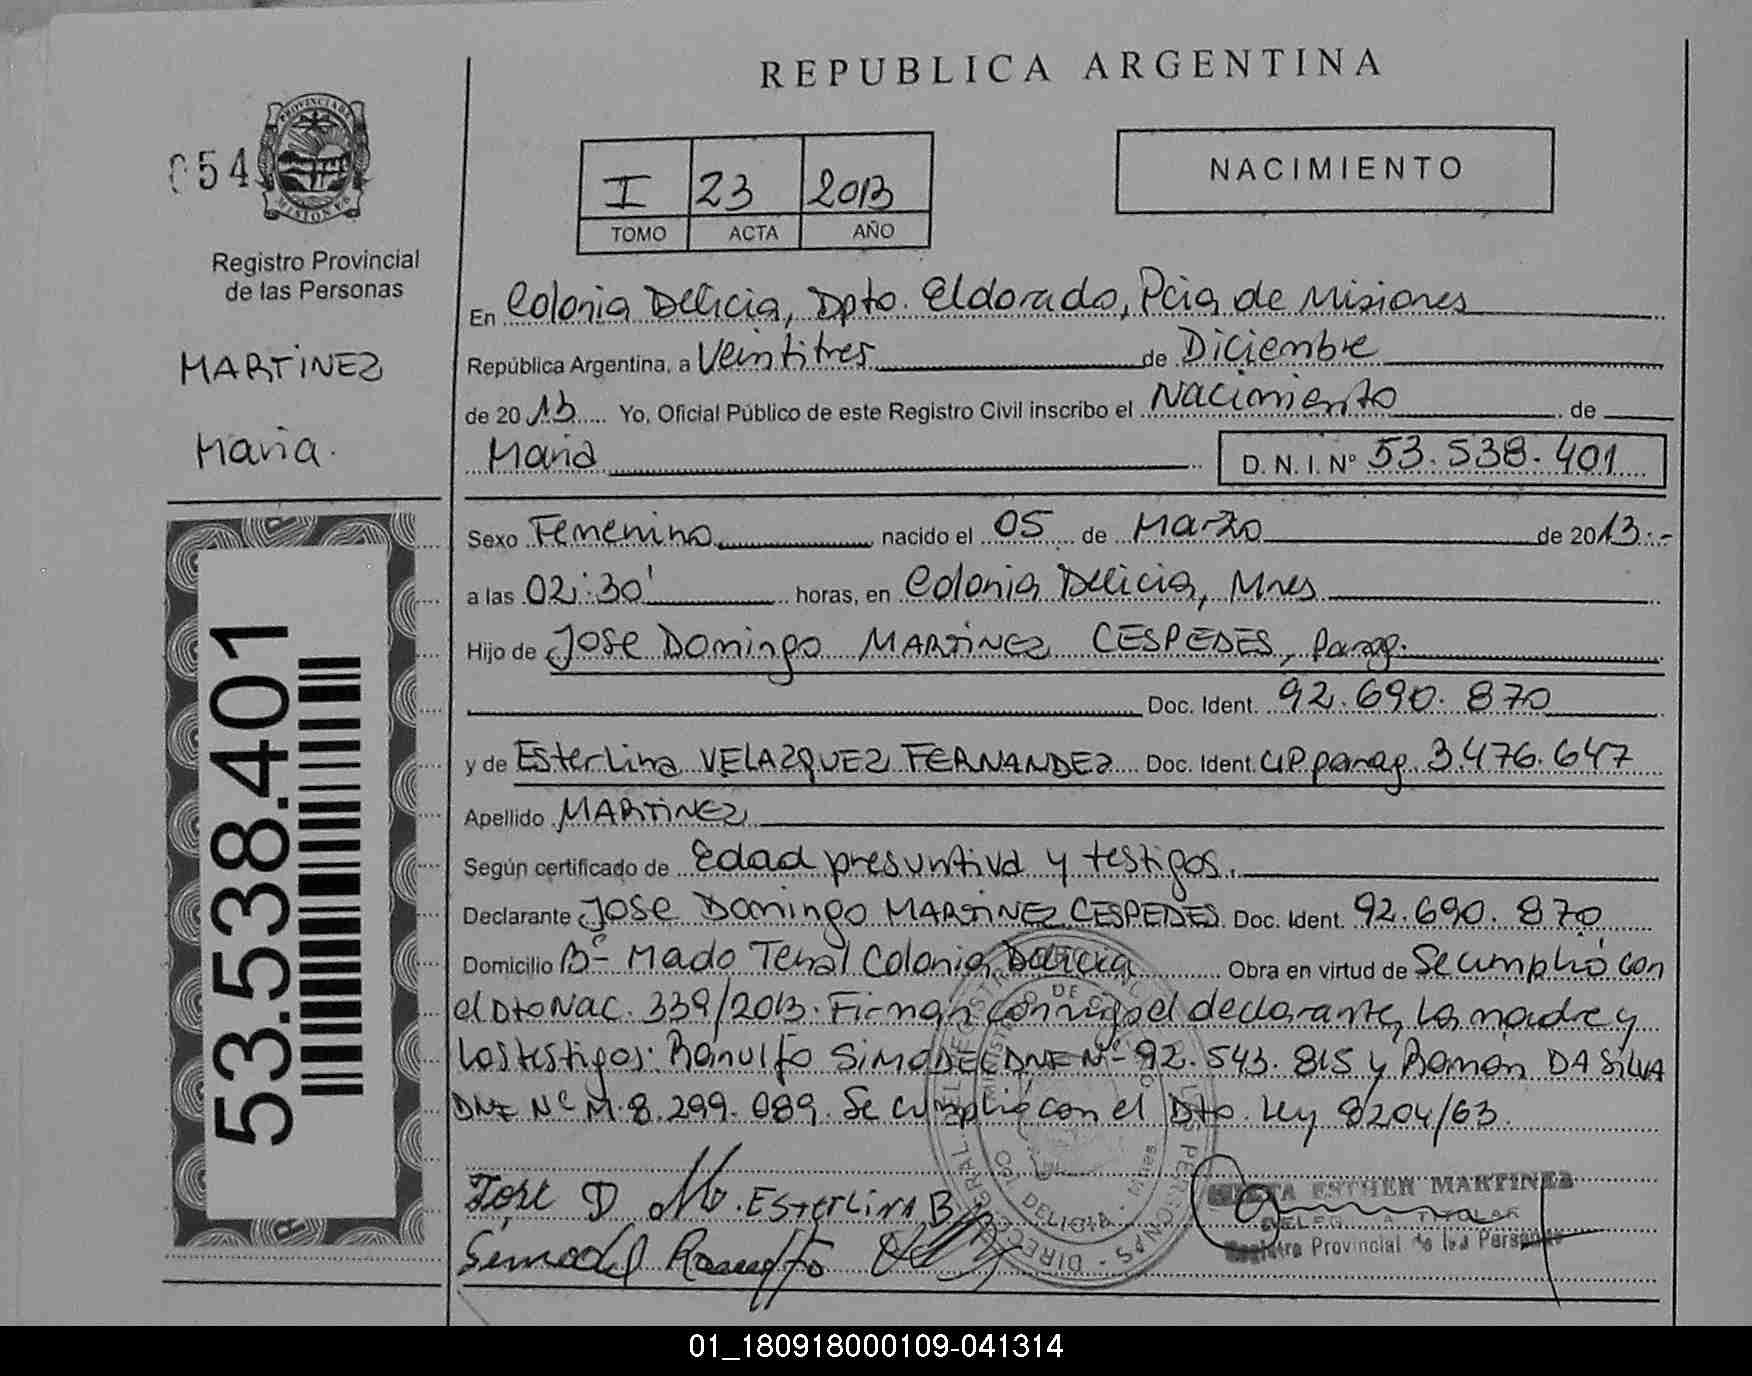 REPUBLICA ARGENTINA
054
PROVINCIA DE
MISIONES
Registro Provincial
de las Personas
MARTINEZ
Maria.
53.538.401
I 23 2013
TOMO ACTA AÑO
NACIMIENTO
En Colonia Delicia, Dpto. Eldorado, Pcia de Misiones
República Argentina, a Veintitres de Diciembre
de 2013 Yo, Oficial Público de este Registro Civil inscribo el Nacimiento de
Maria D. N. I. Nº 53.538.401
Sexo Femenino nacido el 05 de Marzo de 2013.-
a las 02:30' horas, en Colonia Delicia, Mnes
Hijo de Jose Domingo MARTINEZ CESPEDES, parag.
Doc. Ident. 92.690.870
y de Esterlina VELAZQUEZ FERNANDEZ Doc. Ident. CIP parag. 3.476.647
Apellido MARTINEZ
Según certificado de Edad presuntiva y testigos.
Declarante Jose Domingo MARTINEZ CESPEDES Doc. Ident. 92.690.870
Domicilio Bº Mado Tenal Colonia Delicia Obra en virtud de Se cumplió con
el Dto Nac. 339/2013. Firman conmigo el declarante, la madre y
los testigos: Ranulfo SIMODEL DNI Nº 92.543.815 y Ramon DA SILVA
DNI Nº M.8.299.089. Se cumplió con el Dto. Ley 8204/63.
Jose D M. Esterlina B
Simodel Ranulfo
ESTHER MARTINEZ
TITULAR
Registro Provincial de las Personas
01_180918000109-041314